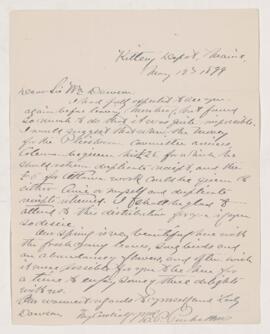 Kittery Depot, Maine,
May 12th 1899
Dear Sir Wm Dawson
I had full expected to see you
again before leaving Montreal, but found
so much to do that it was quite impossible.
I would suggest that when the money
for the Committee arrives,
for which he
should return duplicate receipt, and the
for work could be given to
either or myself and duplicate
receipts returned. I shall be glad to
attend to the distribution for you if you
so desire.
Our spring is very beautiful here with
the fresh young leaves, song birds and
an abundance of flowers, and I often wish
it were possible for you to be here for
a time to enjoy some of these delights
with us.
Our warmest regards to yourself and Lady
Dawson